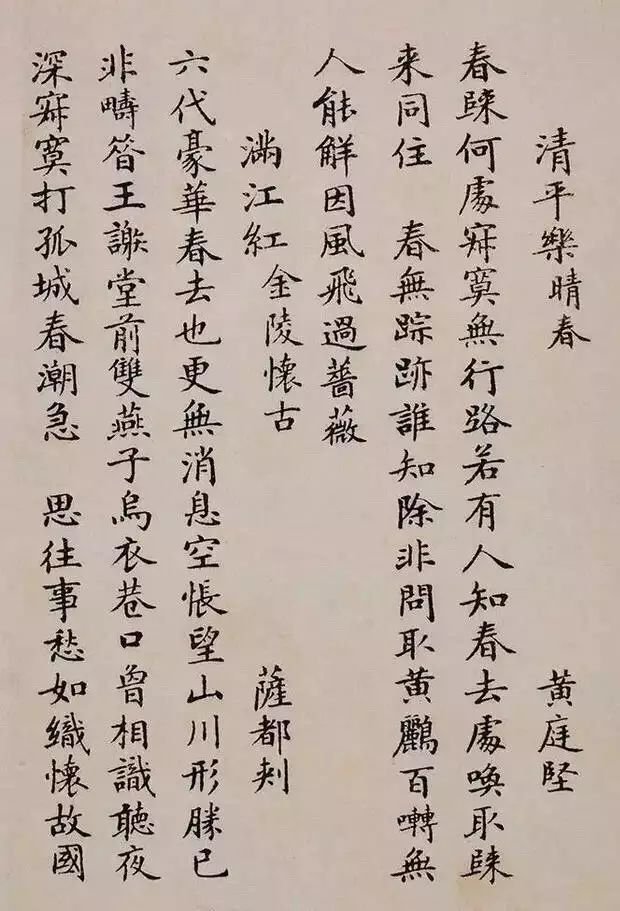 清平樂晴春 黃庭堅
春歸何處寂寞無行路若有人知春去處喚取歸
来同住 春無踪跡誰知除非問取黃鸝百囀無
人能解因風飛過薔薇
滿江紅金陵懷古 薩都剌
六代豪華春去也更無消息空悵望山川形勝已
非疇昔王謝堂前雙燕子烏衣巷口曾相識聽夜
深寂寞打孤城春潮急 思往事愁如織懷故國